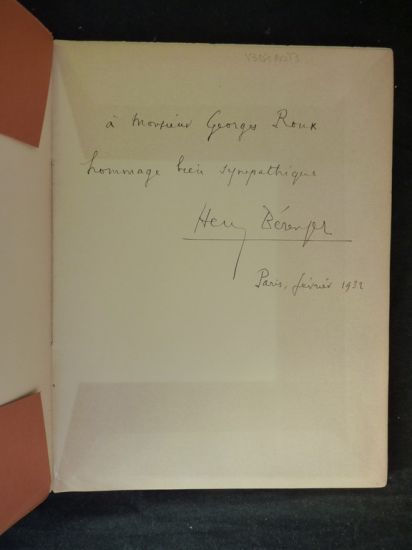 à Monsieur Georges Roux
hommage bien sympathique
Henry Bérenger
Paris, février 1932